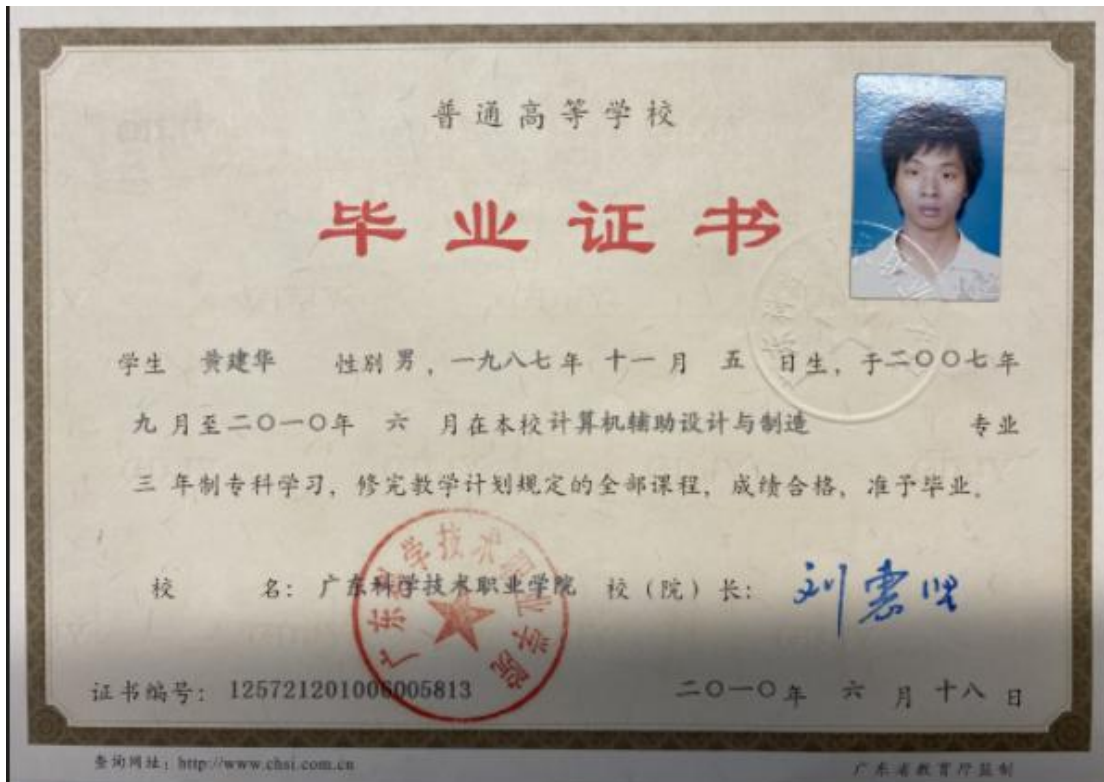 普通高等学校
毕业证书
学生 黄建华 性别 男，一九八七年 十一 月 五 日生，于二〇〇七年
九 月至二〇一〇年 六 月在本校计算机辅助设计与制造 专业
三 年制专科学习，修完教学计划规定的全部课程，成绩合格，准予毕业。
校 名：广东科学技术职业学院 校（院）长：
广东科学技术职业学院
证书编号：125721201006005813 二〇一〇年 六 月 十八 日
查询网址：http://www.chsi.com.cn 广东省教育厅监制